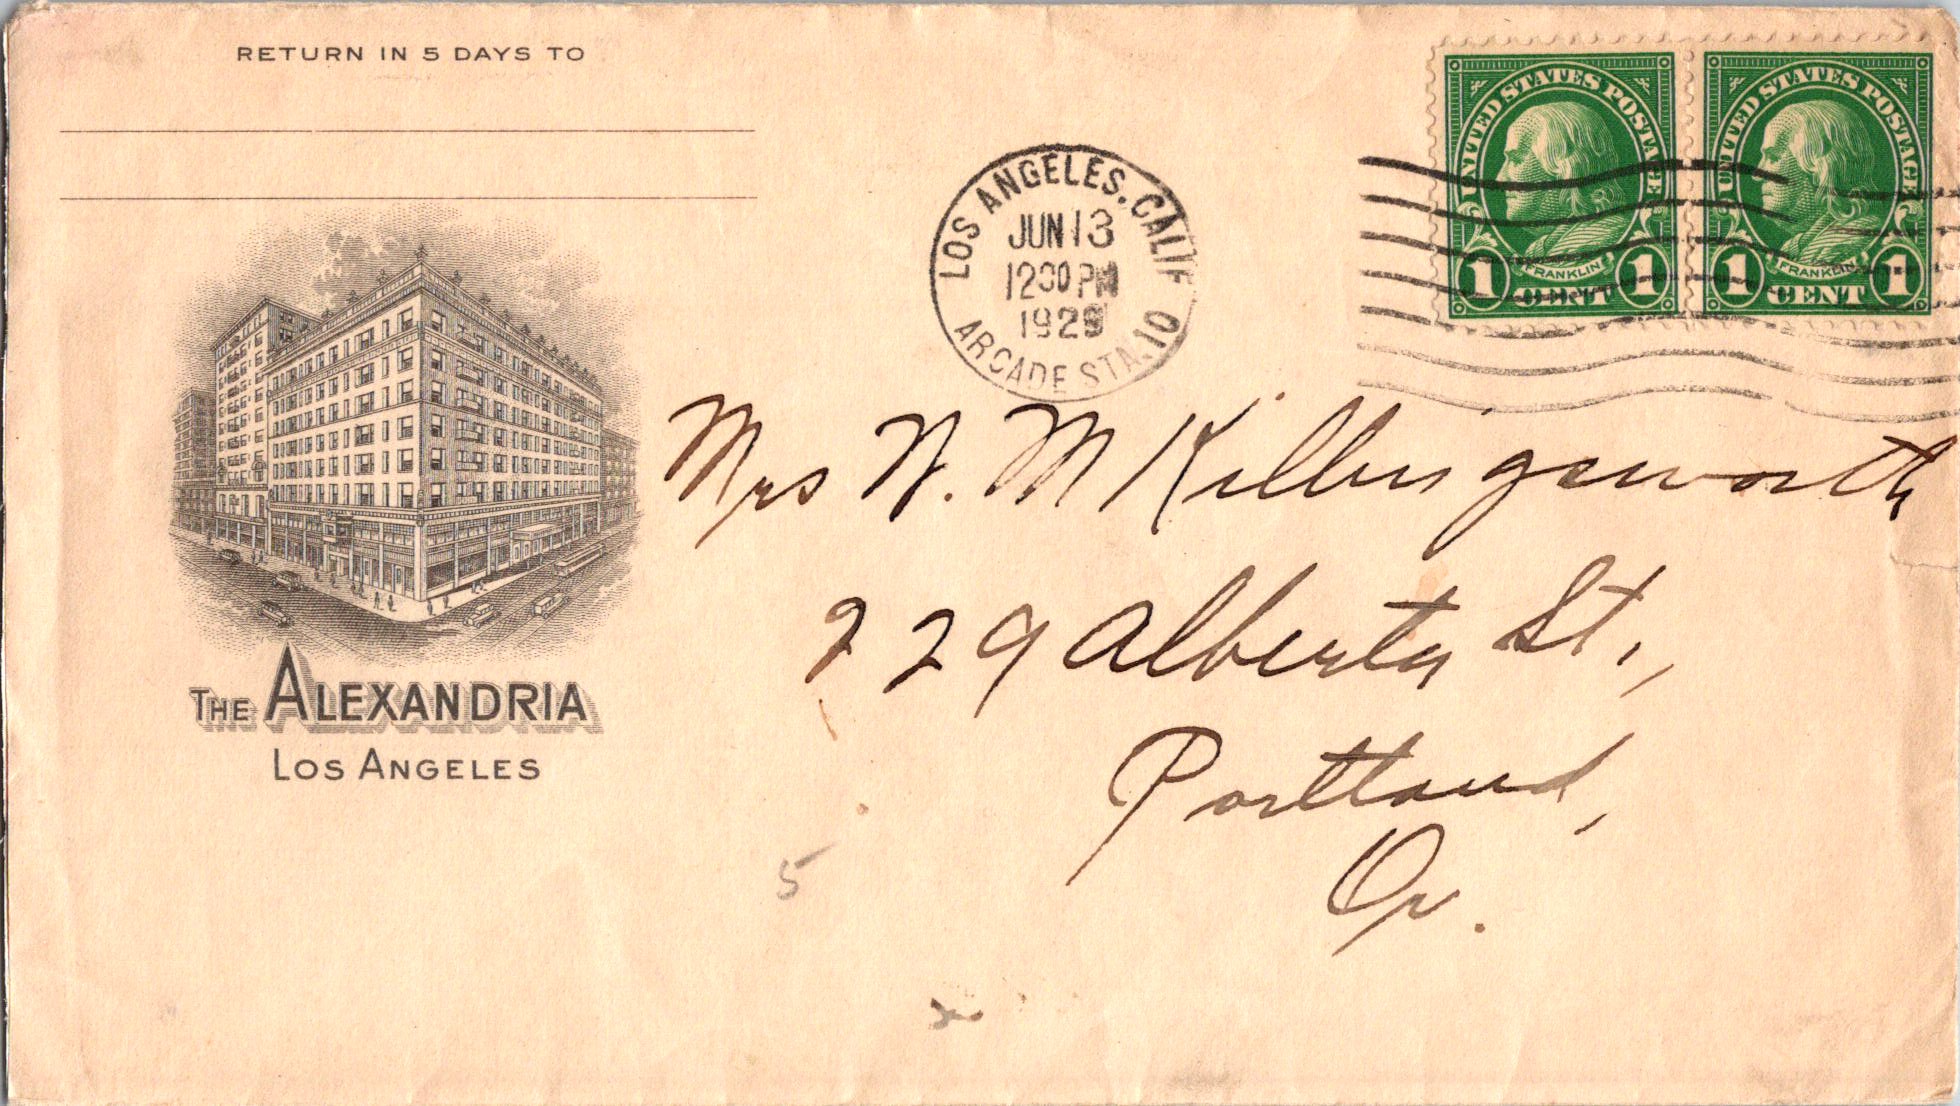 RETURN IN 5 DAYS TO
THE ALEXANDRIA
LOS ANGELES
LOS ANGELES, CALIF
JUN 13
12 30 PM
1929
ARCADE STA. 10
UNITED STATES POSTAGE
FRANKLIN
1 CENT 1
UNITED STATES POSTAGE
FRANKLIN
1 CENT 1
Mrs N. M Killingsworth
229 Alberta St.,
Portland,
Or.
5